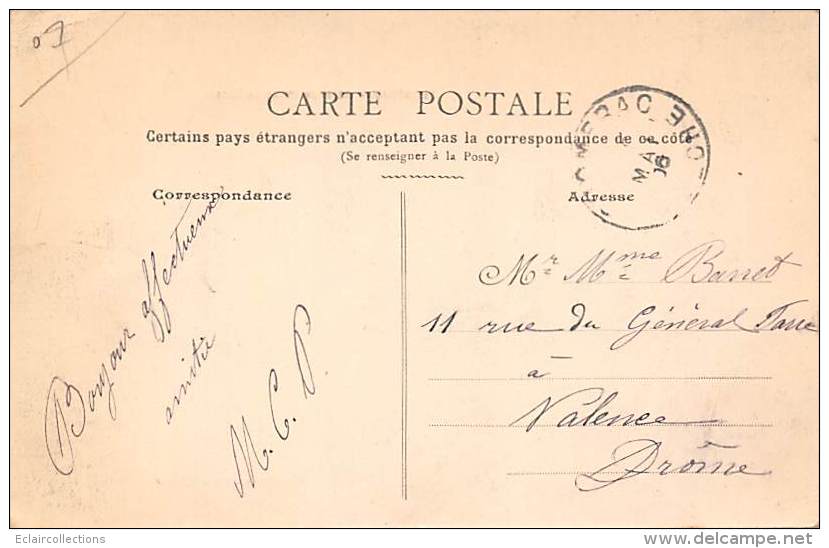 07
CARTE POSTALE
Certains pays étrangers n'acceptent pas la correspondance de ce côté
(Se renseigner à la Poste)
Correspondance
Adresse
MAI
06
Bonjour affectueux
amitié
M. C. P.
Mr Mme Barret
11 rue du Général Farre
à
Valence
Drôme
Eclaircollections
www.delcampe.net